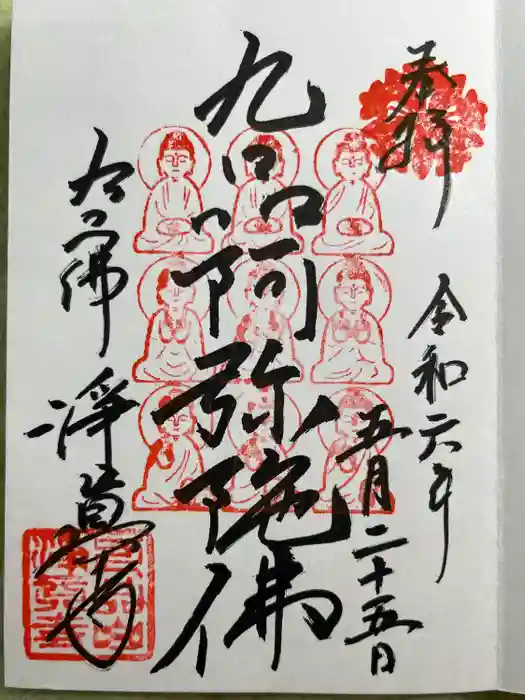 奉拝
令和六年
五月二十五日
九品阿弥陀佛
九品佛 淨眞寺